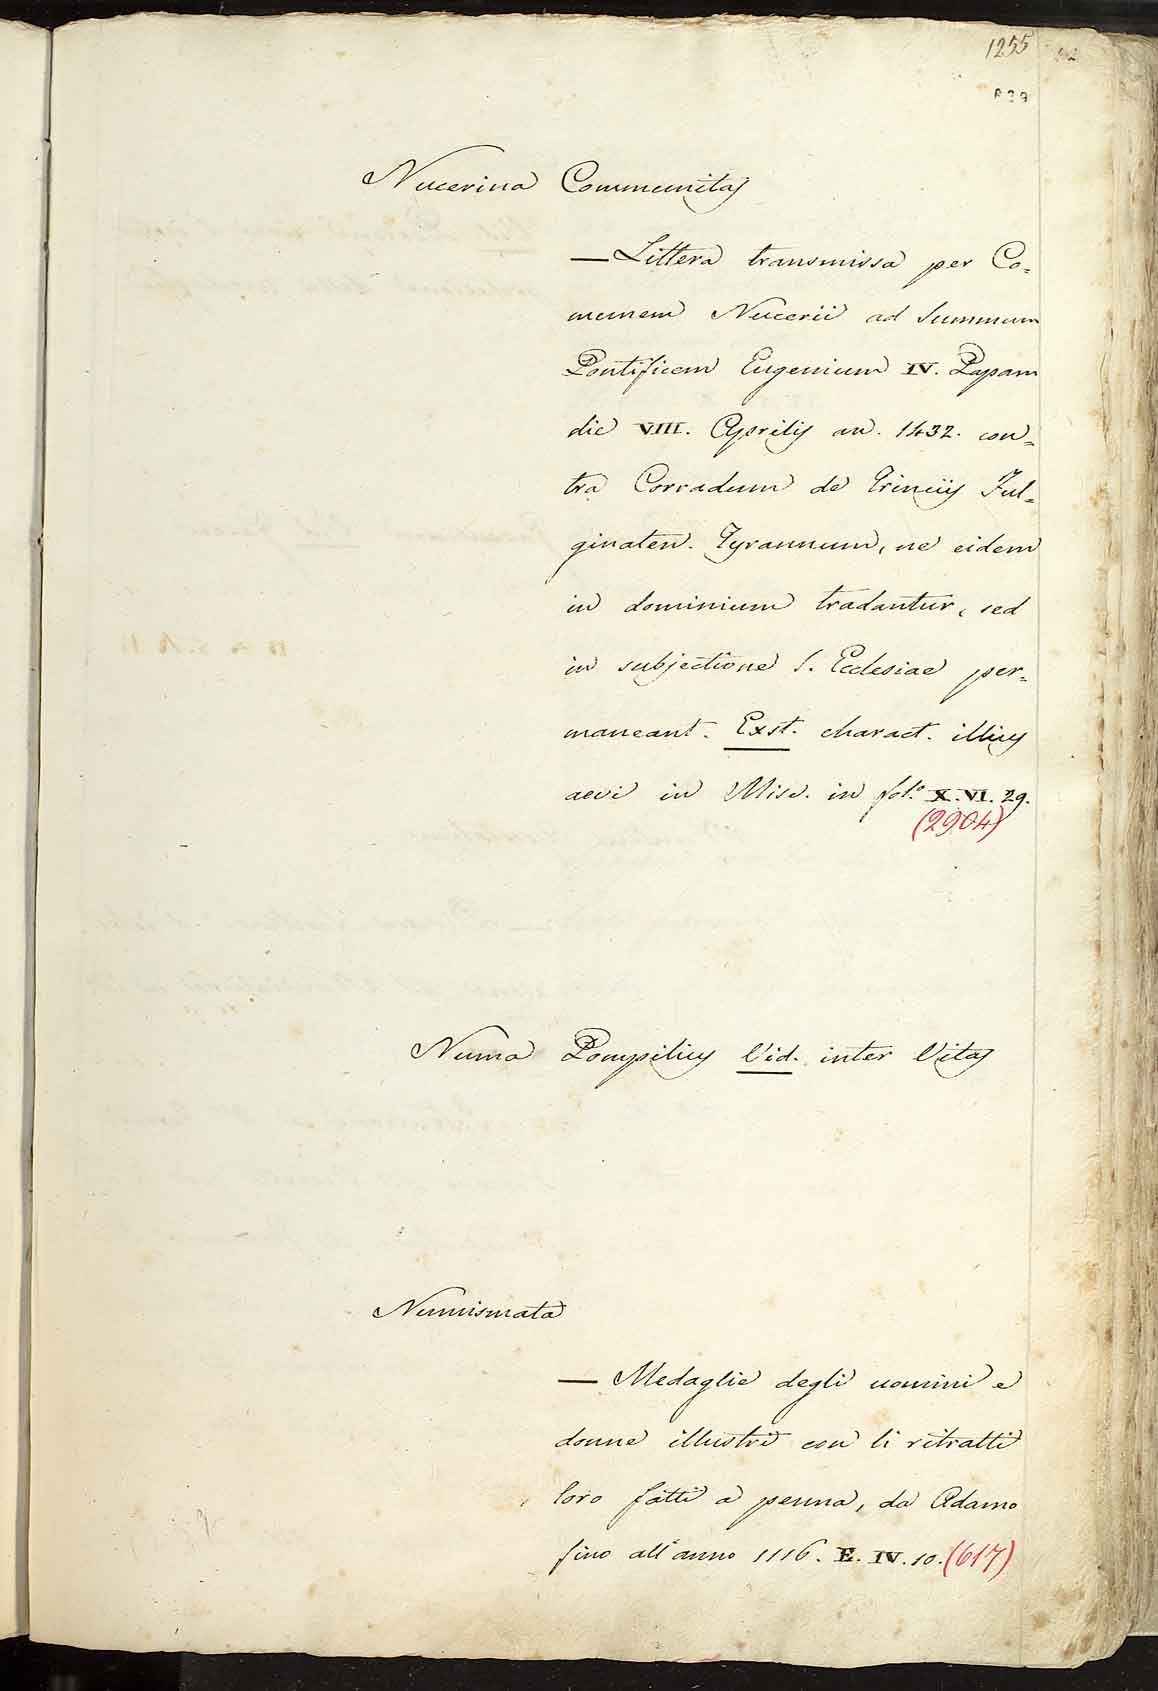 1255
839
Nucerina Communitas
— Littera transmissa per Co-
munem Nucerii ad Summum
Pontificem Eugenium IV. Papam
die VIII. Aprilis an. 1432. con-
tra Corradum de Trinciis Ful-
ginaten. Tyrannum, ne eidem
in dominium tradantur, sed
in subjectione S. Ecclesiae per-
maneant. Exst. charact. illius
aevi in Misc. in fol.º X.VI.29.
(2904)
Numa Pompilius Vid. inter Vitas
Numismata
— Medaglie degli uomini e
donne illustri con li ritratti
loro fatti a penna, da Adamo
fino all'anno 1116. E.IV.10. (617)